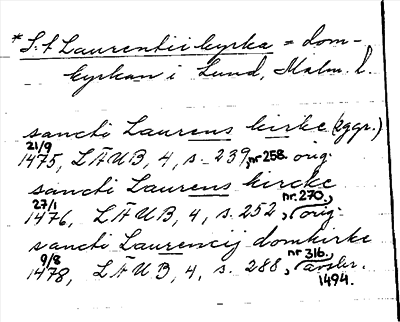 * S:t Laurentii kyrka = dom-
kyrkan i Lund, Malm. l.
sancti Laurens kirke (2 ggr.)
21/9
1475, LÄUB, 4, s. 239, nr 258. orig.
sancti Laurens kircke
27/1
1476, LÄUB, 4, s. 252, nr. 270., orig.
sancti Laurencij domkirke
9/8
1478, LÄUB, 4, s. 288, nr 316., avskr.
1494.